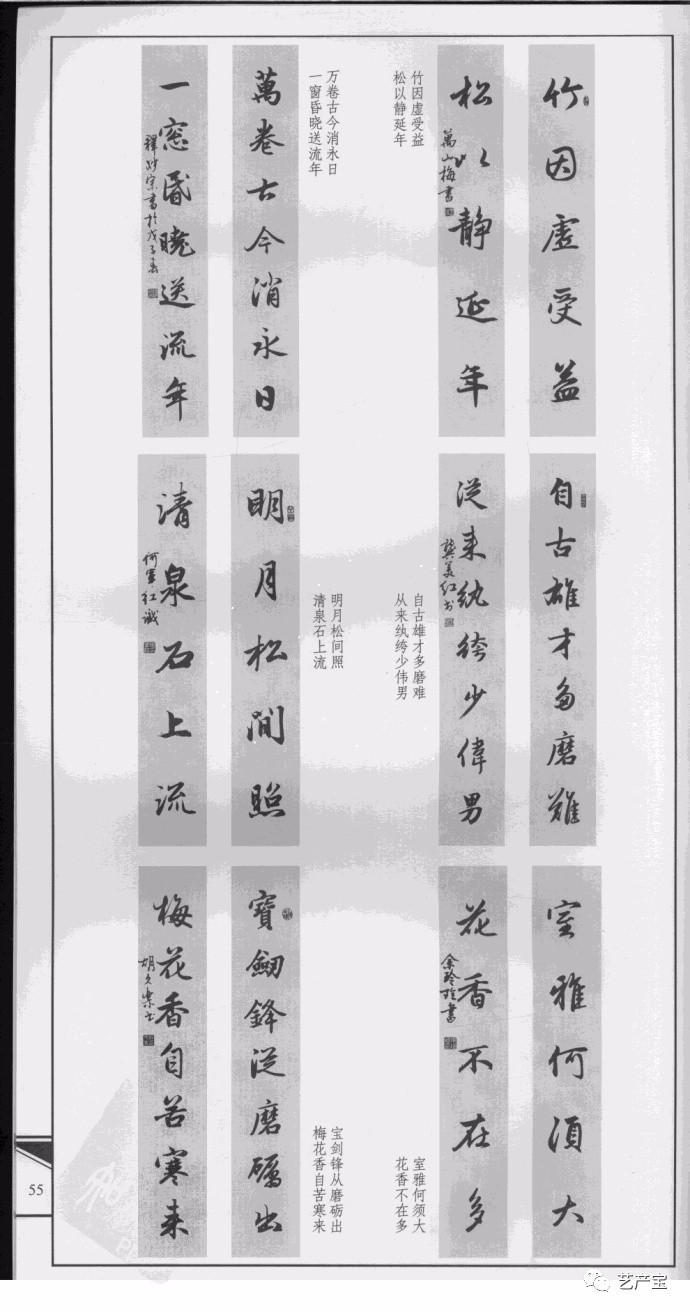 竹因虚受益
松以静延年
萬山梅書
竹因虚受益
松以静延年
萬卷古今消永日
一窓昏曉送流年
万卷古今消永日
一窗昏晓送流年
自古雄才多磨難
從来纨絝少偉男
龔美红书
自古雄才多磨难
从来纨绔少伟男
明月松间照
清泉石上流
何军红识
明月松间照
清泉石上流
室雅何須大
花香不在多
室雅何须大
花香不在多
寶劒鋒從磨礪出
梅花香自苦寒来
宝剑锋从磨砺出
梅花香自苦寒来
55
艺产宝